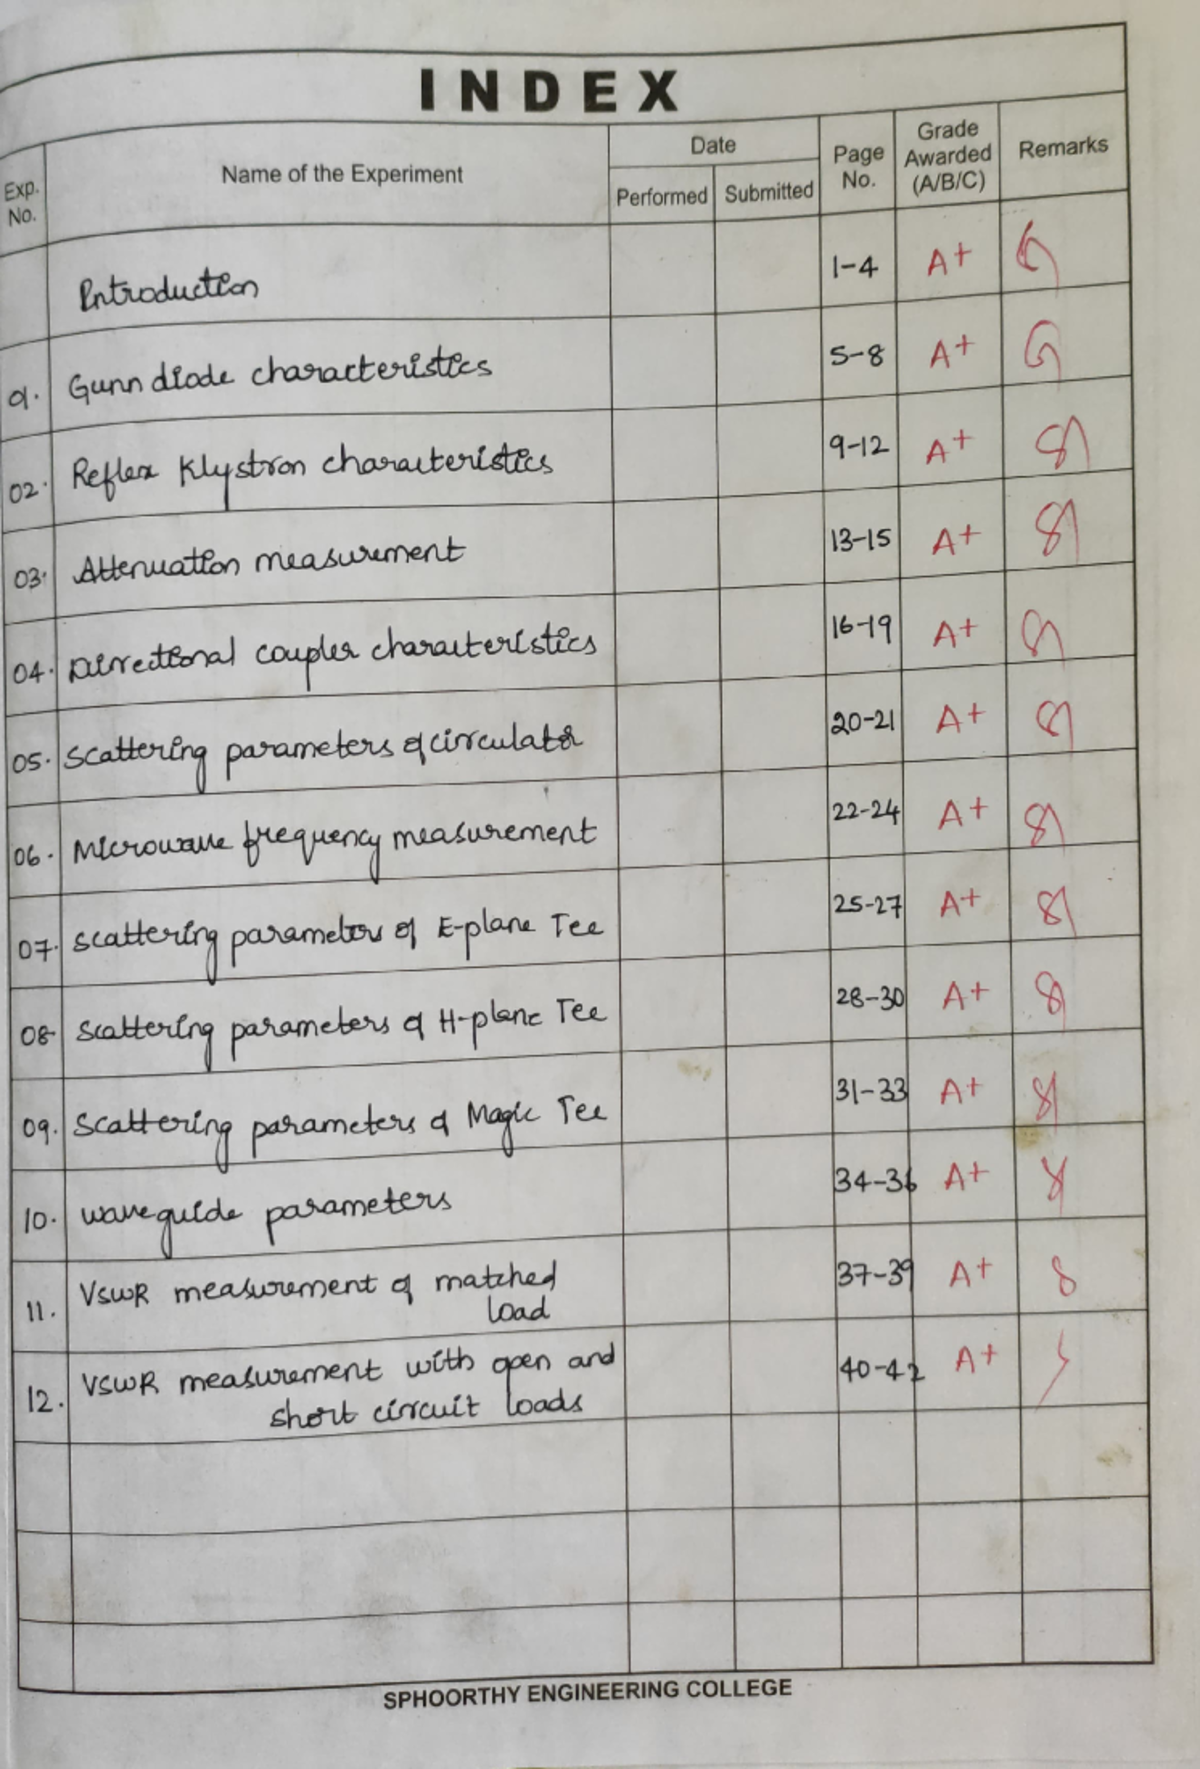 INDEX
Exp. No. Name of the Experiment Date Performed Submitted Page No. Grade Awarded (A/B/C) Remarks
Introduction 1-4 A+
01. Gunn diode characteristics 5-8 A+
02. Reflex Klystron characteristics 9-12 A+
03. Attenuation measurement 13-15 A+
04. Directional coupler characteristics 16-19 A+
05. Scattering parameters of circulator 20-21 A+
06. Microwave frequency measurement 22-24 A+
07. Scattering parameters of E-plane Tee 25-27 A+
08. Scattering parameters of H-plane Tee 28-30 A+
09. Scattering parameters of Magic Tee 31-33 A+
10. waveguide parameters 34-36 A+
11. VSWR measurement of matched 37-39 A+
load
12. VSWR measurement with open and 40-42 A+
short circuit loads
SPHOORTHY ENGINEERING COLLEGE